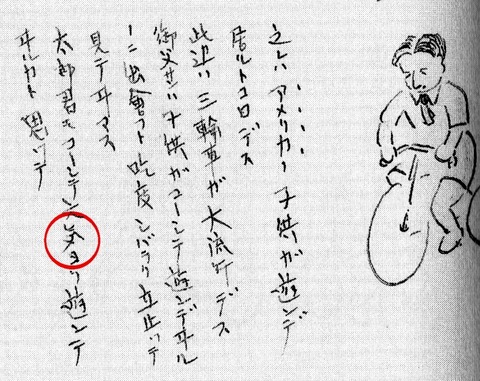 之ハアメリカノ子供ガ遊ンデ
居ルトコロデス
此辺ハ三輪車ガ大流行デス
御父サンハ子供ガコーシテ遊ンデヰル
ノニ出會フト吃度シバラク立止ッテ
見テヰマス
太郎君モコーシテ元気ヨク遊ンデ
ヰルカト思ッテ